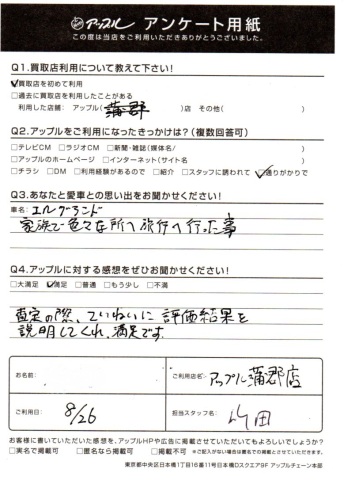 アップル アンケート用紙
この度は当店をご利用いただきありがとうございました。
Q1.買取店利用について教えて下さい!
☑買取店を初めて利用
□過去に買取店を利用したことがある
利用した店舗: アップル( 蒲郡 )店 その他( )
Q2.アップルをご利用になったきっかけは?(複数回答可)
□テレビCM □ラジオCM □新聞・雑誌(媒体名/ )
□アップルのホームページ □インターネット(サイト名 )
□チラシ □DM □利用経験があるので □紹介 □スタッフに誘われて ☑通りがかりで
Q3.あなたと愛車との思い出をお聞かせください!
車名: エルグランド
家族で色々な所へ旅行へ行った事
Q4.アップルに対する感想をぜひお聞かせください!
□大満足 ☑満足 □普通 □もう少し □不満
査定の際、ていねいに評価結果を
説明してくれ、満足です。
お名前:
ご利用店名: アップル蒲郡店
ご利用日: 8/26
担当スタッフ名: 山田
お客様に書いていただいた感想を、アップルHPや広告に掲載させていただいてもよろしいでしょうか?
□実名で掲載可 □匿名なら掲載可 □掲載不可 ※ご記入がない場合は匿名での掲載とさせていただきます。
東京都中央区日本橋1丁目16番11号日本橋Dスクエア9F アップルチェーン本部